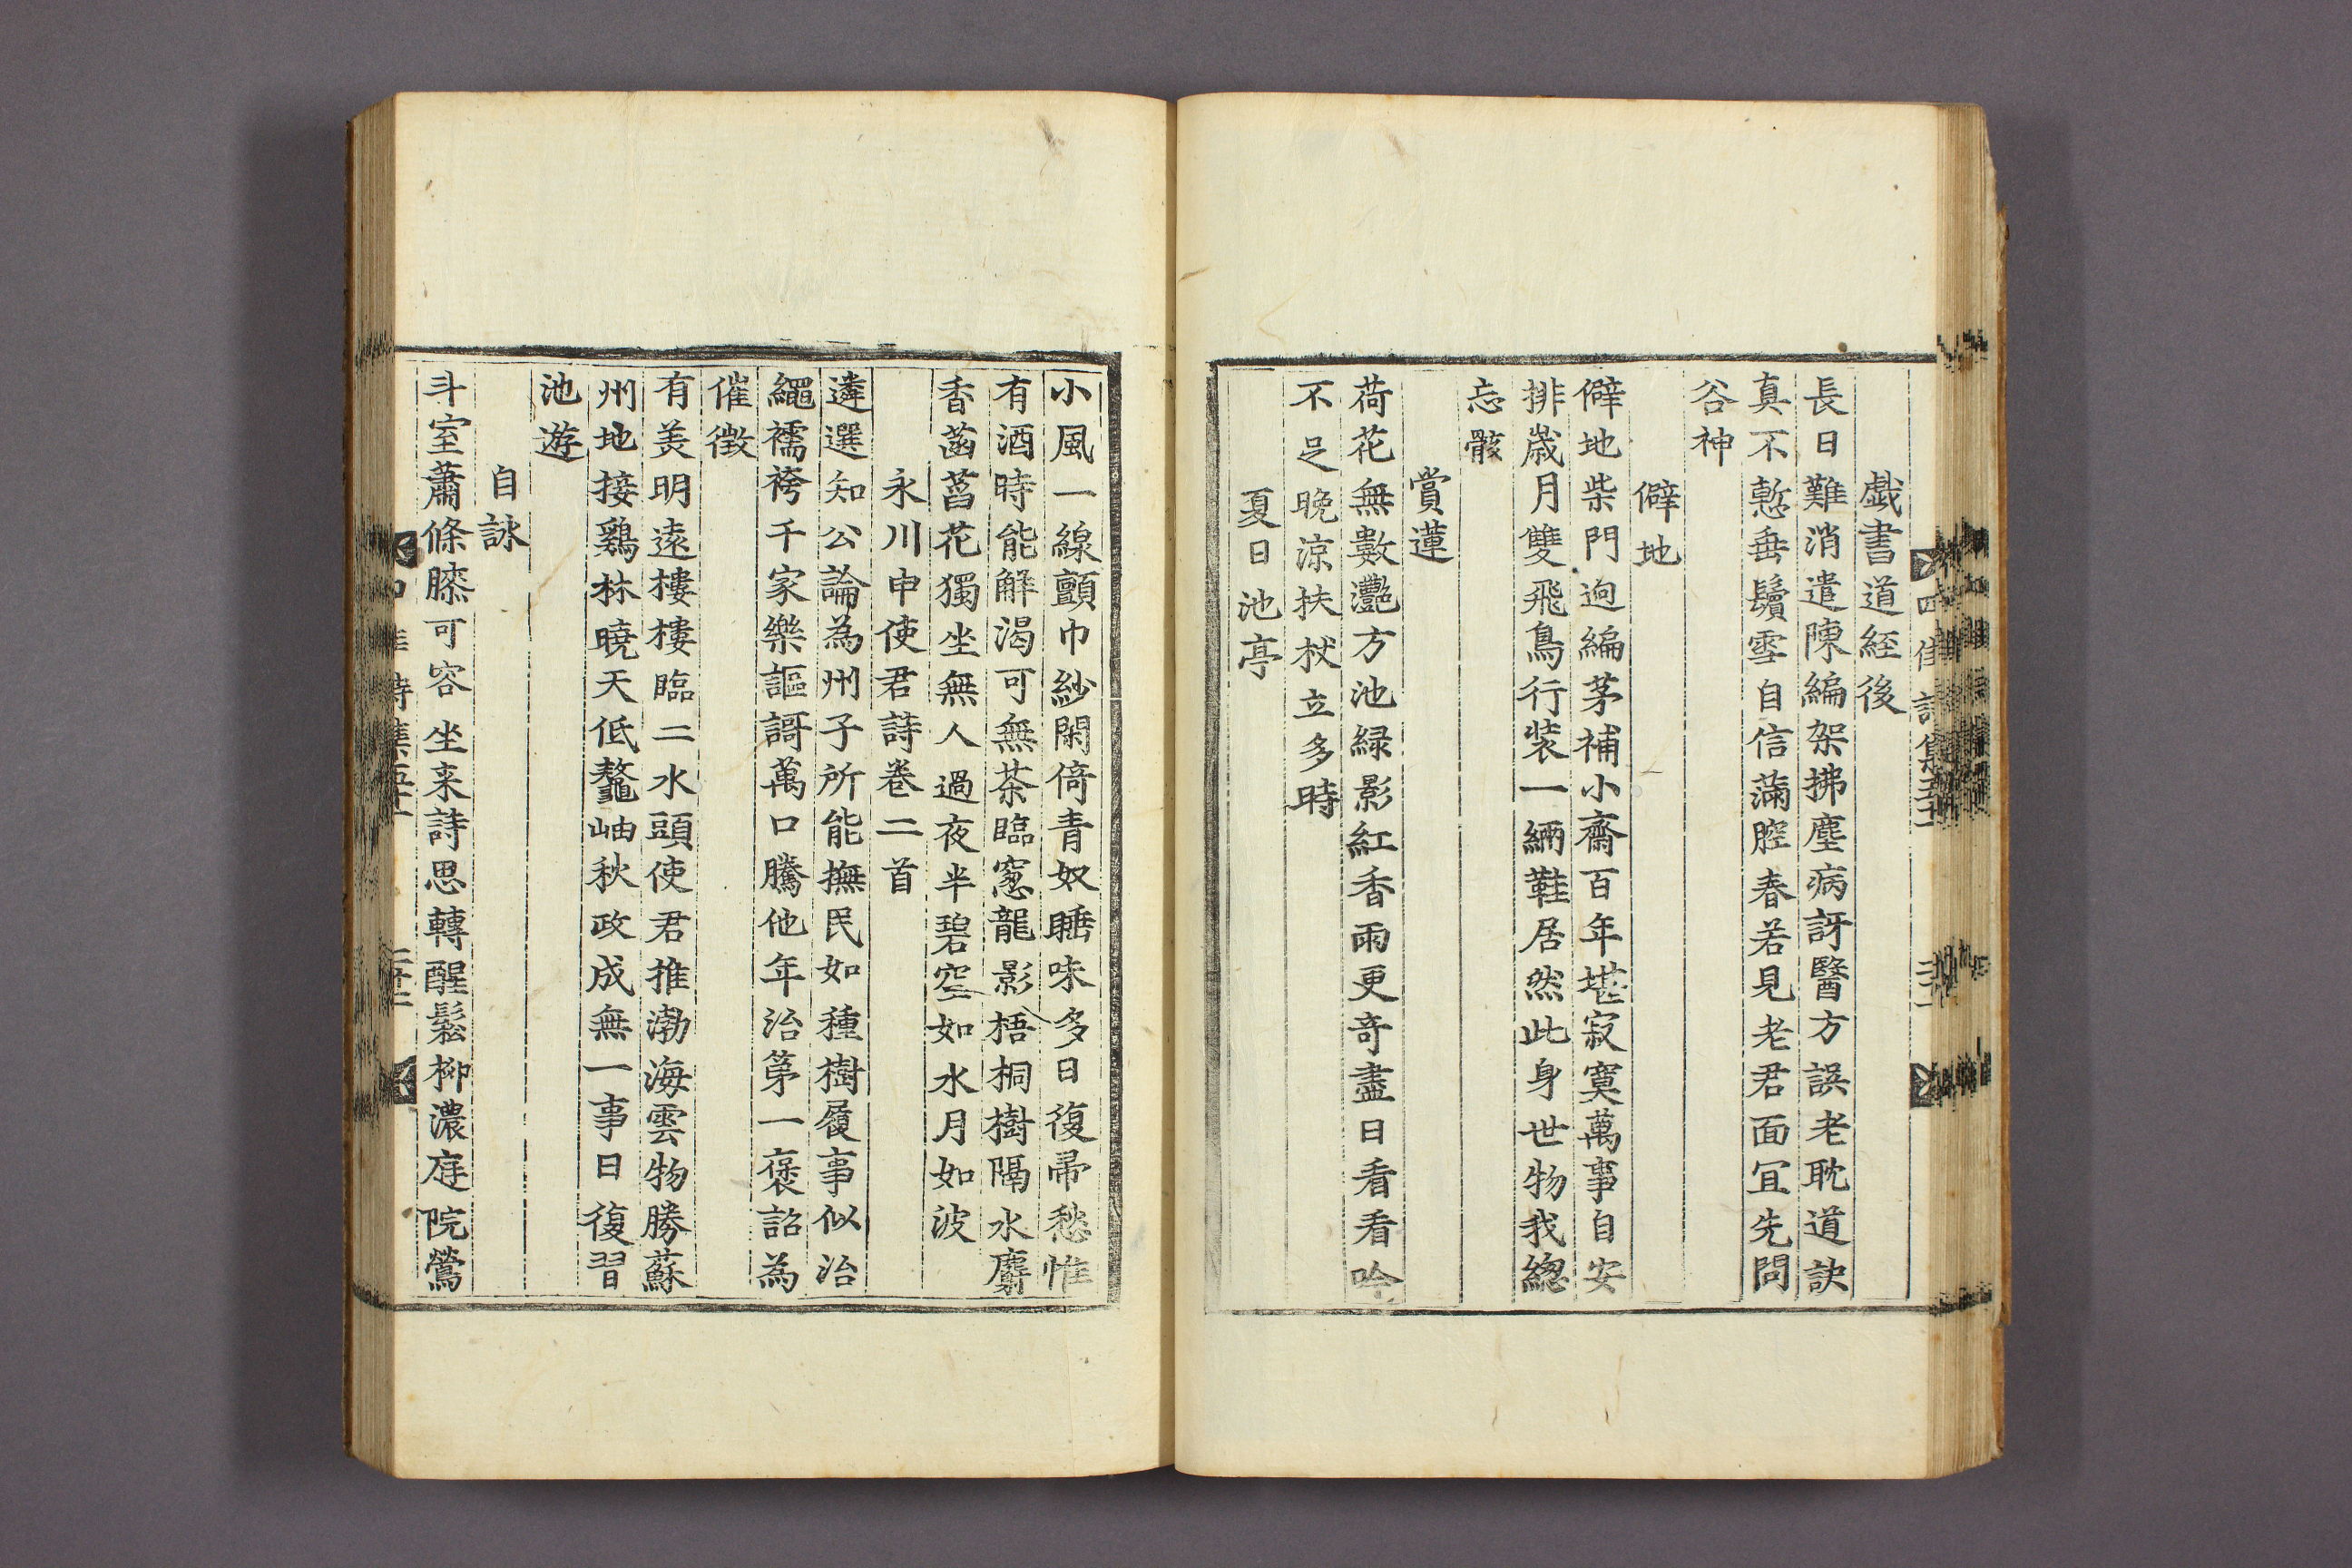 戱書道經後
長日難消遣陳編架拂塵病訝醫方誤老耽道訣
真不慙垂鬢雪自信滿腔春若見老君面宜先問
谷神
僻地
僻地柴門逈編茅補小齋百年堪寂寞萬事自安
排歲月雙飛鳥行装一緉鞋居然此身世物我緫
忘骸
賞蓮
荷花無數灧方池緑影紅香雨更奇盡日看看吟
不足晚凉扶杖立多時
夏日池亭
小風一線顫巾紗閑倚青奴睡味多日復帚愁惟
有酒時能解渴可無茶臨窓龍影梧桐樹隔水麝
香菡萏花獨坐無人過夜半碧空如水月如波
永川申使君詩卷二首
遴選知公論為州子所能撫民如種樹履事似治
繩襦袴千家樂謳謌萬口騰他年治第一褒詔為
催徵
有美明遠樓樓臨二水頭使君推渤海雲物勝蘇
州地接鷄林曉天低鼇岫秋政成無一事日復習
池遊
自詠
斗室蕭條膝可容坐来詩思轉醒鬆柳濃庭院鶯